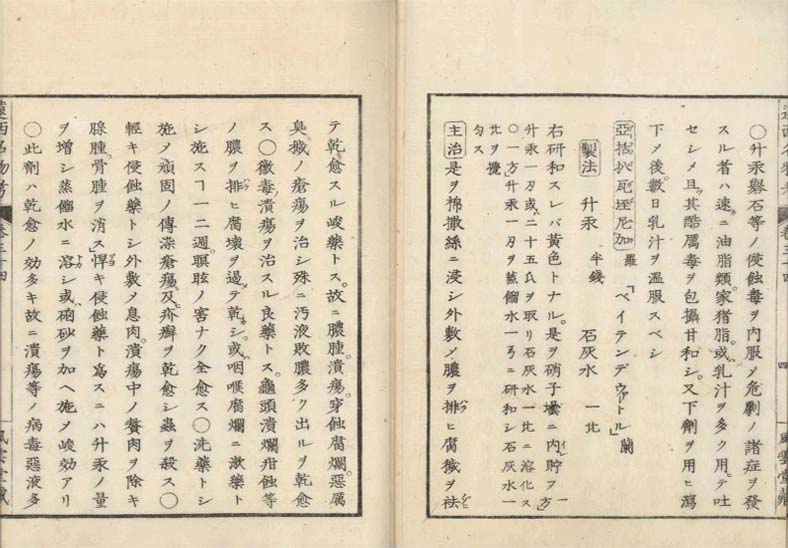 ○升汞礜石等ノ侵蝕毒ヲ内服ノ危剰ノ諸症ヲ發
スル者ハ速ニ油脂類家猪脂或乳汁ヲ多ク用テ吐
セシメ且其酷厲毒ヲ包攝甘和シ又下劑ヲ用ヒ瀉
下ノ後數日乳汁ヲ温服スベシ
亞括扒瓦坯尼加 羅「ベイテンデ ヴァトル」蘭
製法 升汞 半錢 石灰水 一比
右研和スレバ黄色トナル是ヲ硝子壜ニ内貯フ 一方
升汞一刃或二十五氏ヲ取リ石灰水一比ニ溶化ス
○一方升汞一刃ヲ蒸餾水一ニ研和シ石灰水一
比ヲ攪
匀ス
主治 是ヲ棉撒絲ニ浸シ外敷ノ膿ヲ排ヒ腐穢ヲ袪
遠西名物考 卷三十四
四
風雲堂藏
テ乾愈スル峻藥トス故ニ膿腫潰瘍穿蝕腐爛惡厲
臭穢ノ瘡瘍ヲ治シ殊ニ汚液敗膿多ク出ルヲ乾愈
ス○黴毒潰瘍ヲ治スル良藥トス龜頭潰爛疳蝕等
ノ膿ヲ排ヒ腐壞ヲ遏テ乾シ或咽喉腐爛ニ漱藥ト
シ施スヿ一二週瞑眩ノ害ナク全愈ス○洗藥トシ
施ノ頑固ノ傳染瘡瘍及疥癬ヲ乾愈シ蟲ヲ殺ス○
輕キ侵蝕藥トシ外敷ノ息肉潰瘍中ノ贅肉ヲ除キ
腺腫骨腫ヲ消ス悍キ侵蝕藥ト爲スニハ升汞ノ量
ヲ増シ蒸餾水ニ溶シ或硇砂ヲ加ヘ施ノ峻効アリ
○此劑ハ乾愈ノ効多キ故ニ潰瘍等ノ病毒惡液多
遠西名物考 卷三十四
風雲堂藏